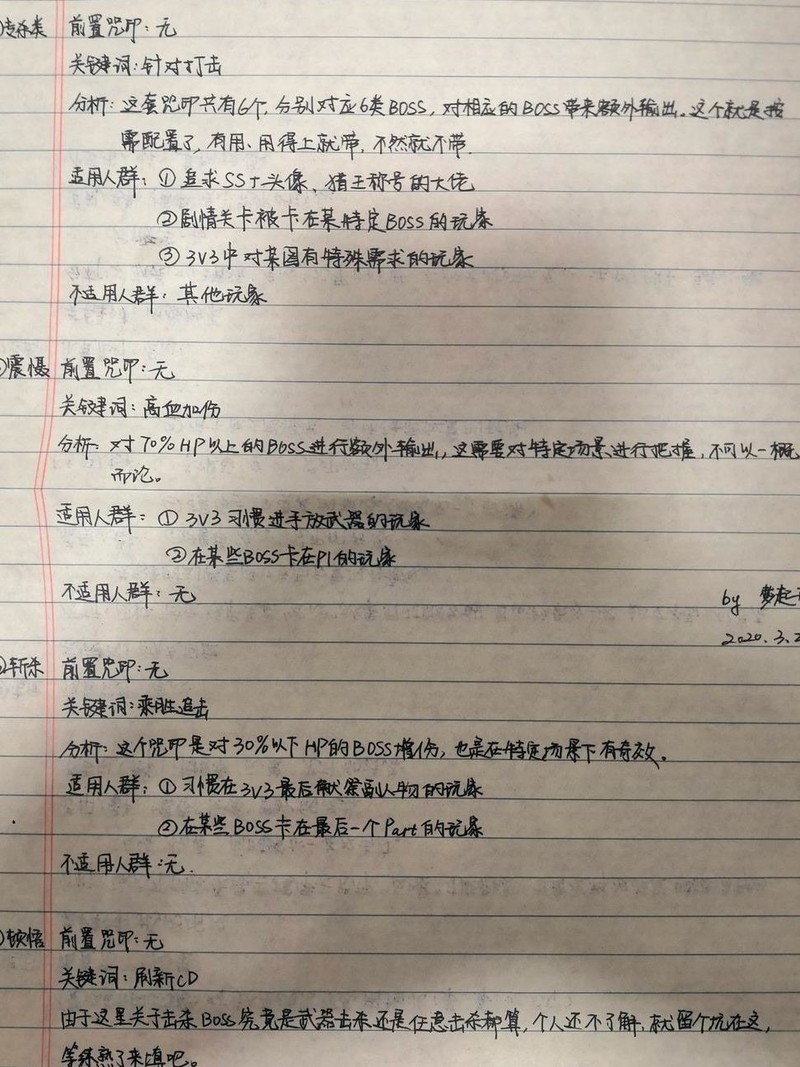 专杀类 前置咒印：无
关键词：针对打击
分析：这套咒印共有6个，分别对应6类BOSS，对相应的BOSS带来额外输出。这个就是按
需配置了，有用、用得上就带，不然就不带.
适用人群：① 追求SS+头像、猎王称号的大佬
②剧情关卡被卡在某特定BOSS的玩家
③ 3V3中对某图有特殊需求的玩家
不适用人群：其他玩家
震慑 前置咒印：无
关键词：高血加伤
分析：对70%HP以上的BOSS进行额外输出，这需要对特定场景进行把握，不可以一概
而论。
适用人群：① 3V3习惯进手放武器的玩家
②在某些BOSS卡在P1的玩家
不适用人群：无
by 梦起
2020.3.2
斩杀 前置咒印：无
关键词：乘胜追击
分析：这个咒印是对30%以下HP的BOSS增伤，也是在特定场景下有奇效。
适用人群：① 习惯在3V3最后献祭副人物的玩家
②在某些BOSS卡在最后一个Part的玩家
不适用人群：无.
顿悟 前置咒印：无
关键词：刷新CD
由于这里关于击杀BOSS究竟是武器击杀还是任意击杀都算，个人还不了解，就留个坑在这，
等练熟了来填吧。